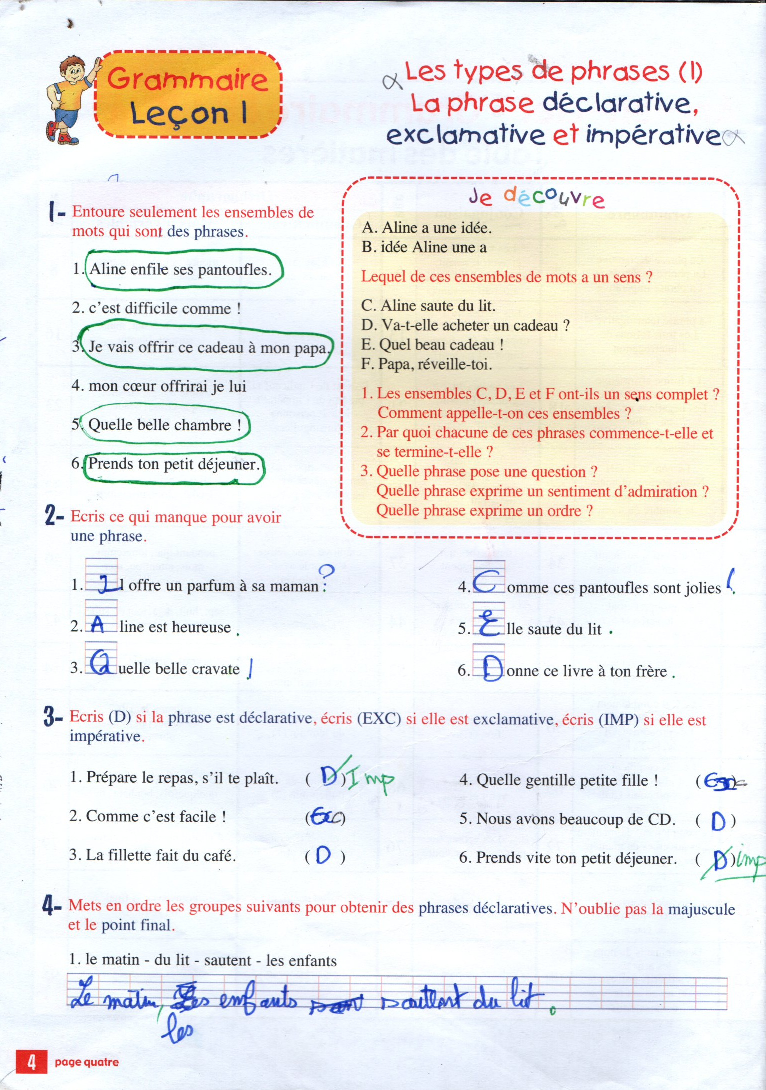 Grammaire
Leçon 1
Les types de phrases (1)
La phrase déclarative,
exclamative et impérative
1- Entoure seulement les ensembles de
mots qui sont des phrases.
1. Aline enfile ses pantoufles.
2. c'est difficile comme !
3. Je vais offrir ce cadeau à mon papa.
4. mon cœur offrirai je lui
5. Quelle belle chambre !
6. Prends ton petit déjeuner.
Je découvre
A. Aline a une idée.
B. idée Aline une a
Lequel de ces ensembles de mots a un sens ?
C. Aline saute du lit.
D. Va-t-elle acheter un cadeau ?
E. Quel beau cadeau !
F. Papa, réveille-toi.
1. Les ensembles C, D, E et F ont-ils un sens complet ?
Comment appelle-t-on ces ensembles ?
2. Par quoi chacune de ces phrases commence-t-elle et
se termine-t-elle ?
3. Quelle phrase pose une question ?
Quelle phrase exprime un sentiment d'admiration ?
Quelle phrase exprime un ordre ?
2- Ecris ce qui manque pour avoir
une phrase.
1. Il offre un parfum à sa maman ?
2. A line est heureuse .
3. Q uelle belle cravate !
4. C omme ces pantoufles sont jolies !
5. E lle saute du lit .
6. D onne ce livre à ton frère .
3- Ecris (D) si la phrase est déclarative, écris (EXC) si elle est exclamative, écris (IMP) si elle est
impérative.
1. Prépare le repas, s'il te plaît. ( D ) Imp
2. Comme c'est facile ! ( )
3. La fillette fait du café. ( D )
4. Quelle gentille petite fille ! ( )
5. Nous avons beaucoup de CD. ( D )
6. Prends vite ton petit déjeuner. ( D ) imp
4- Mets en ordre les groupes suivants pour obtenir des phrases déclaratives. N'oublie pas la majuscule
et le point final.
1. le matin - du lit - sautent - les enfants
Le matin, Les enfants sautent du lit.
les
4 page quatre